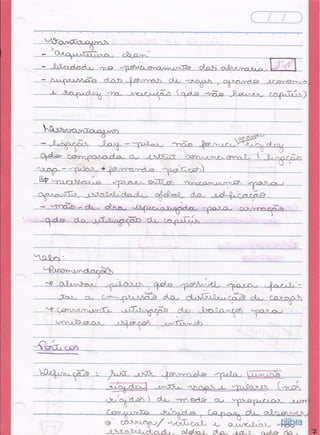 Vantagens
- "arquitetura clean"
- liberdade no posicionamento das alvenarias
- supressão das formas de vigas, grande economia
e rapidez na execução (qdo não houver capitéis)
Desvantagens
- ligação laje-pilar não fornece grande rigidez
qdo comparada a estrut. convencional (ligação
viga-pilar formando pórticos)
necessário prever outros mecanismos para
garantir estabilidade global da edificação
- mão-de-obra especializada para armação
qdo da utilização de capitéis
Obs:
Recomendações
alinhar pilares, qdo possível para facili-
tar a compreensão da distribuição de cargas
conveniente utilização de balanços para
melhorar esforços internos
Pórticos
Definição: Sist. este formado pela união
rígida entre vigas e pilares (nós
rígidos) de modo a propiciar um
conjunto rígido, capaz de absorver
o carreg./ vertical e auxiliar na
estabilidade global da
7